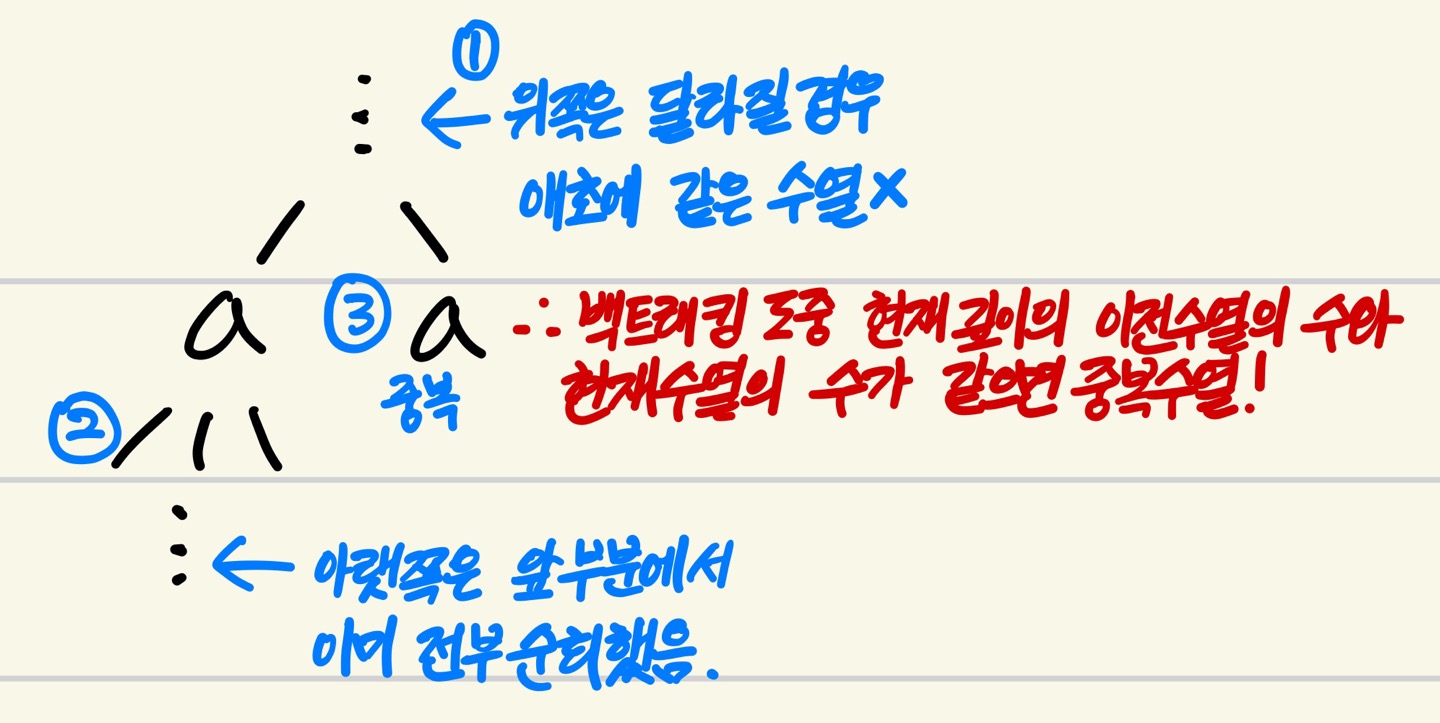 ①
← 위쪽은 달라질 경우
애초에 같은 수열 X
a ③ a ∴ 백트래킹 도중 현재 깊이의 이전수열의 수와
중복 현재수열의 수가 같으면 중복수열!
②
← 아랫쪽은 앞부분에서
이미 전부 순회했음.